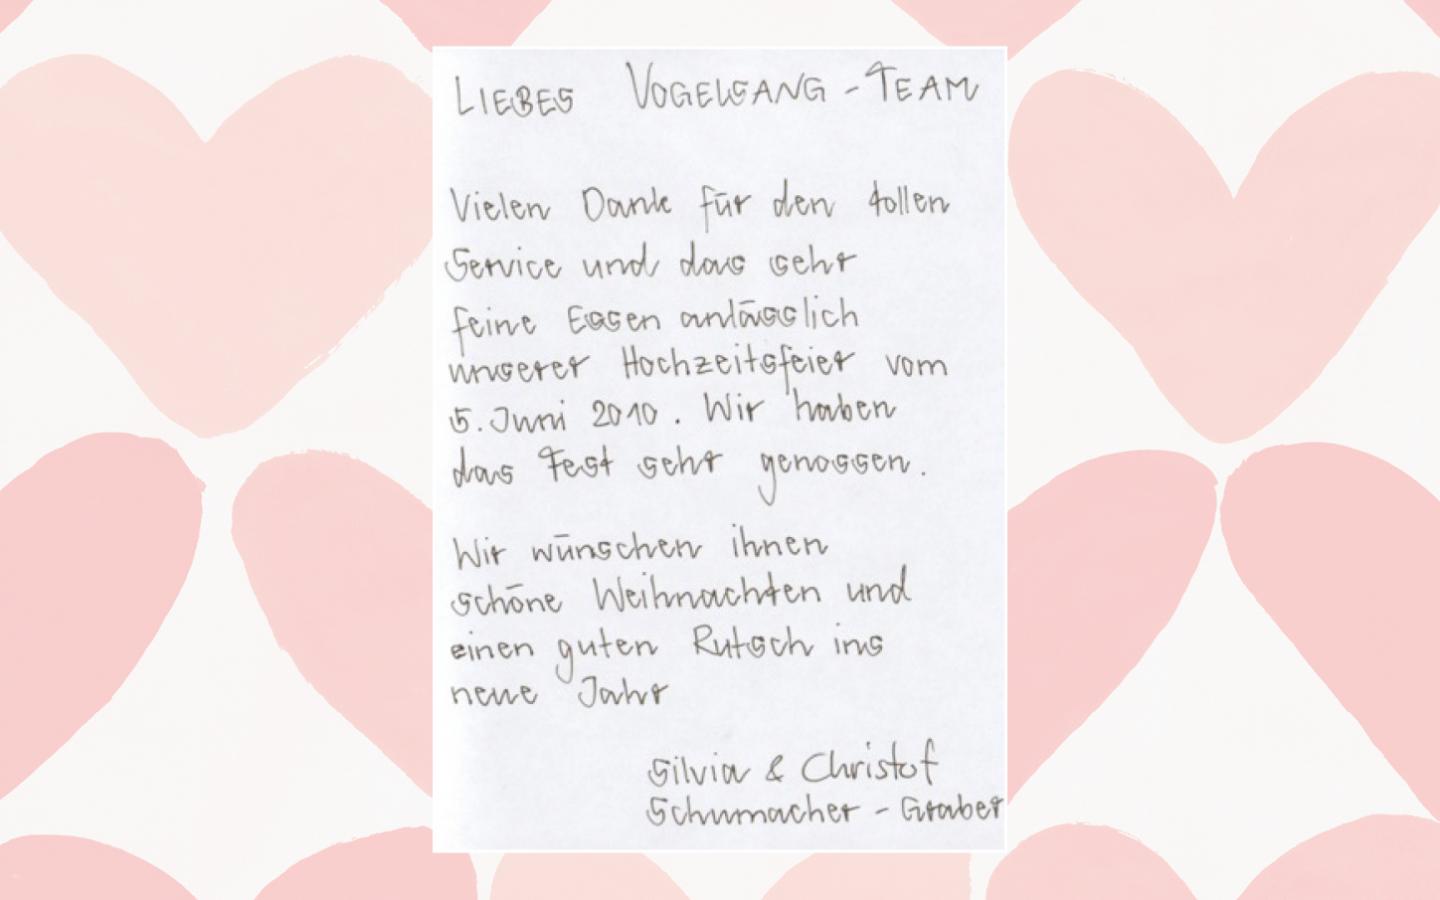 LIEBES VOGELSANG - TEAM
Vielen Dank für den tollen
Service und das sehr
feine Essen anlässlich
unserer Hochzeitsfeier vom
5. Juni 2010. Wir haben
das Fest sehr genossen.
Wir wünschen ihnen
schöne Weihnachten und
einen guten Rutsch ins
neue Jahr
Silvia & Christof
Schumacher - Graber